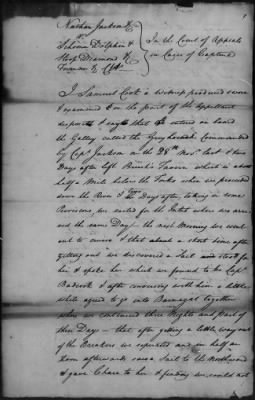 Nathan Jackson &c
vs
Schooner Dolphin &
Sloop Diamond &
In the Court of Appeals
in Cases of Capture
I Samuel Cook a witness produced sworn
& examined on the part of the Appellant
say that I entered on board
the Galley called the Greyhound Commanded
by Capt Jackson on the 28th Novr last & two
Days after left Tavern which is about
half a Mile below the Forks when we proceeded
down the River & Days after, taking in some
Provisions, we sailed for the Inlet where we arri-
ved the same Day the next Morning we went
out to cruise & that about a short time after
getting out we discovered a Sail and stood for
her & spoke her which we found to be Capt
Badcock & after conversing with him a little
while agreed to go into Barnagat together
where we continued three Nights and part of
three Days that after getting a little way out
of the Breakers we separated and in half an
hour afterwards saw a Sail to the Northward
& gave Chace to her & finding we could not